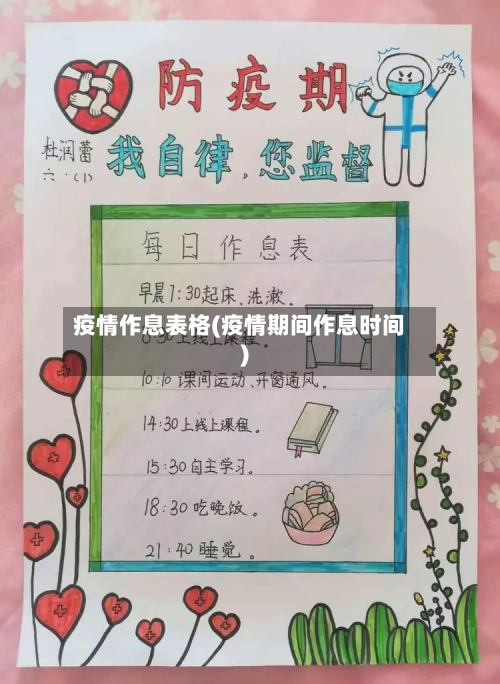 防疫期
杜润蕾
六·(1)
我自律,您监督
每日作息表
早晨7:30起床、洗漱.
疫情作息表格(疫情期间作息时间
)
8:30上线上课程。
10:10课间运动、开窗通风。
14:30上线上课程。
15:30自主学习。
18:30吃晚饭。
21:40睡觉。